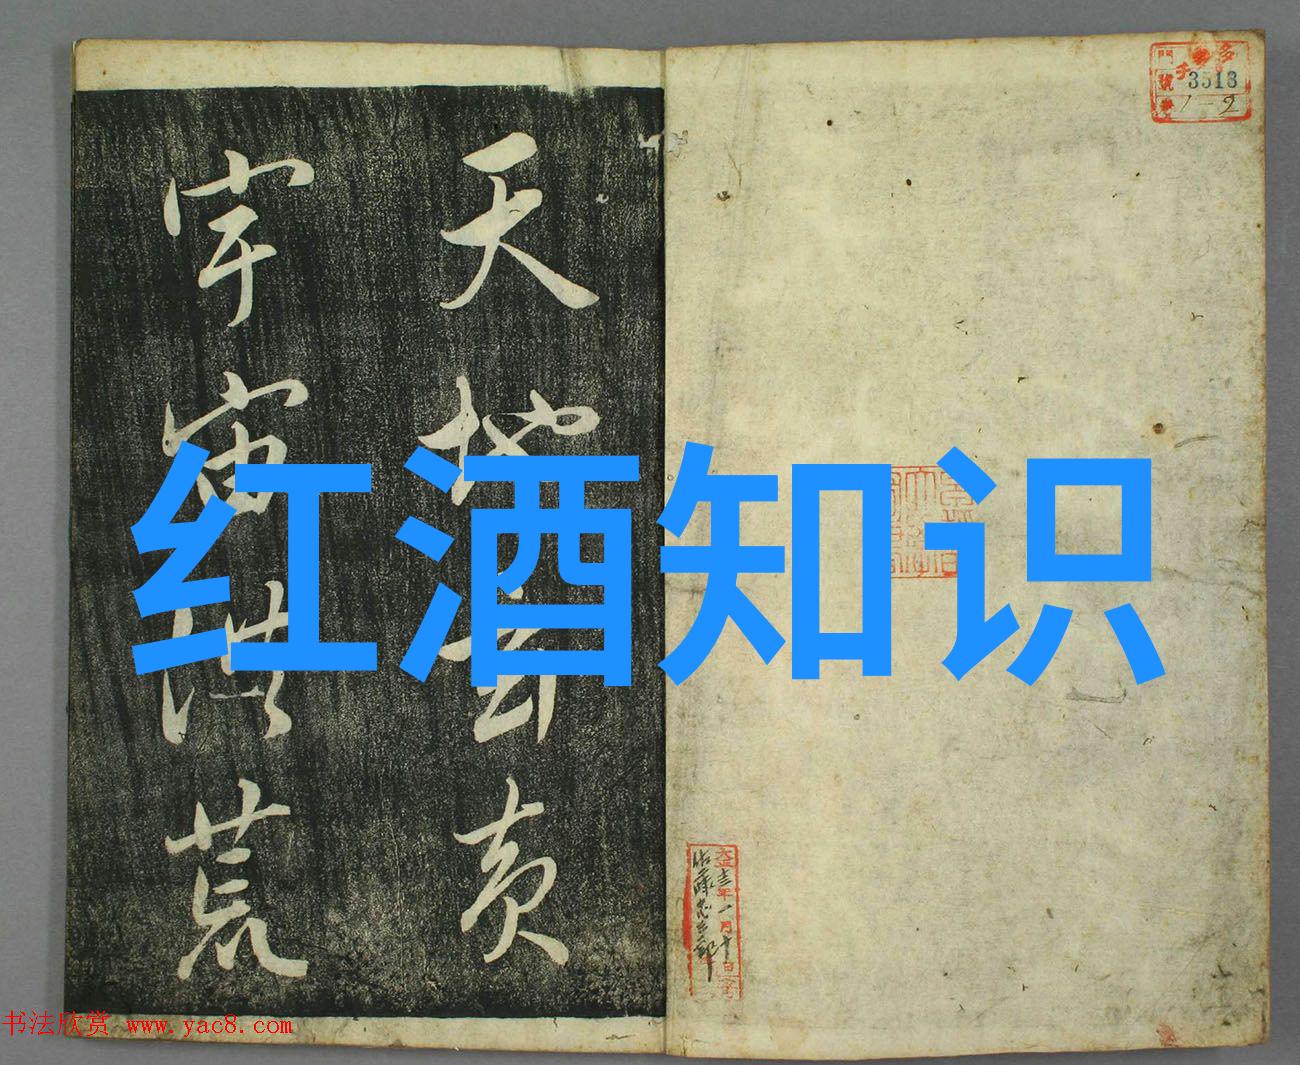 天地玄黄
宇宙洪荒
红酒知识
3513
1-2
书法欣赏 www.yac8.com